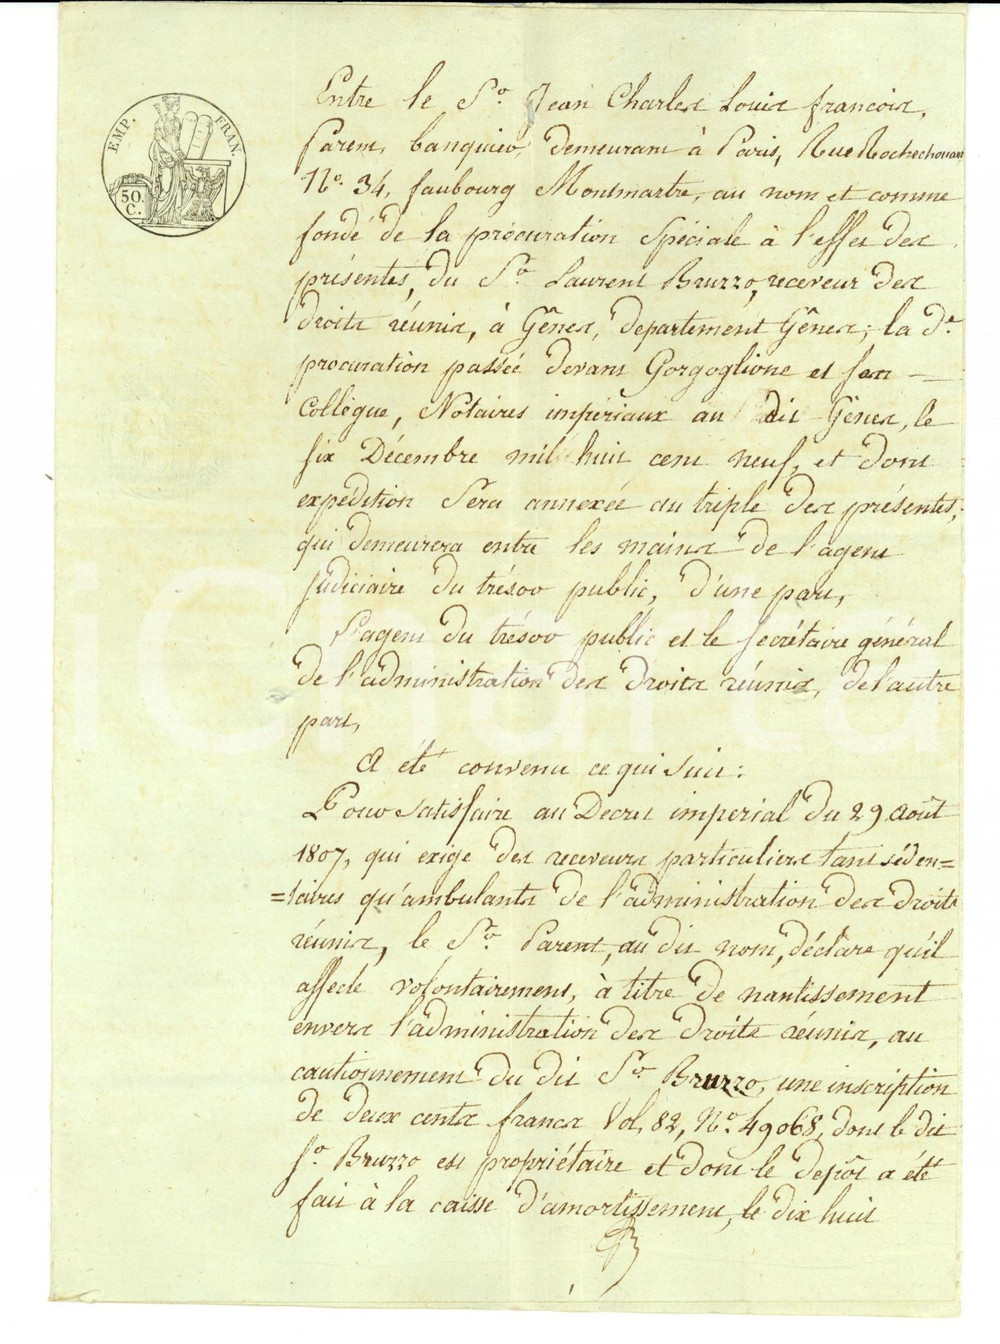 EMP. FRAN.
50.
C.
Entre le Sr. Jean Charles Louis francois,
Parent, banquier, demeurant à Paris, Rue Rochechouart
No. 34, faubourg Montmartre, au nom et comme
fondé de la procuration spéciale à l'effet des
présentes, du Sr. Laurent Bruzzo, receveur des
droits réunis, à Gênes, département Gênes; la de.
procuration passée devant Gorgoglione et son
Collègue, Notaires impériaux au dit Gênes, le
six Décembre mil huit cent neuf, et dont
expédition sera annexée au triple des présentes,
qui demeurera entre les mains de l'agent
judiciaire du trésor public, d'une part,
L'agent du trésor public et le secrétaire général
de l'administration des droits réunis, de l'autre
part,
A été convenu ce qui suit:
Pour satisfaire au Décret imperial du 29 Août
1807, qui exige des receveurs particuliers tant séden=
=taires qu'ambulants de l'administration des droits
réunis, le Sr. Parent, au dit nom, déclare qu'il
affecte volontairement, à titre de nantissement
envers l'administration des droits réunis, au
cautionnement du dit Sr. Bruzzo, une inscription
de deux cents francs Vol. 82, No. 49068, dont le dit
Sr. Bruzzo est propriétaire et dont le depôt a été
fait à la caisse d'amortissement, le dix huit